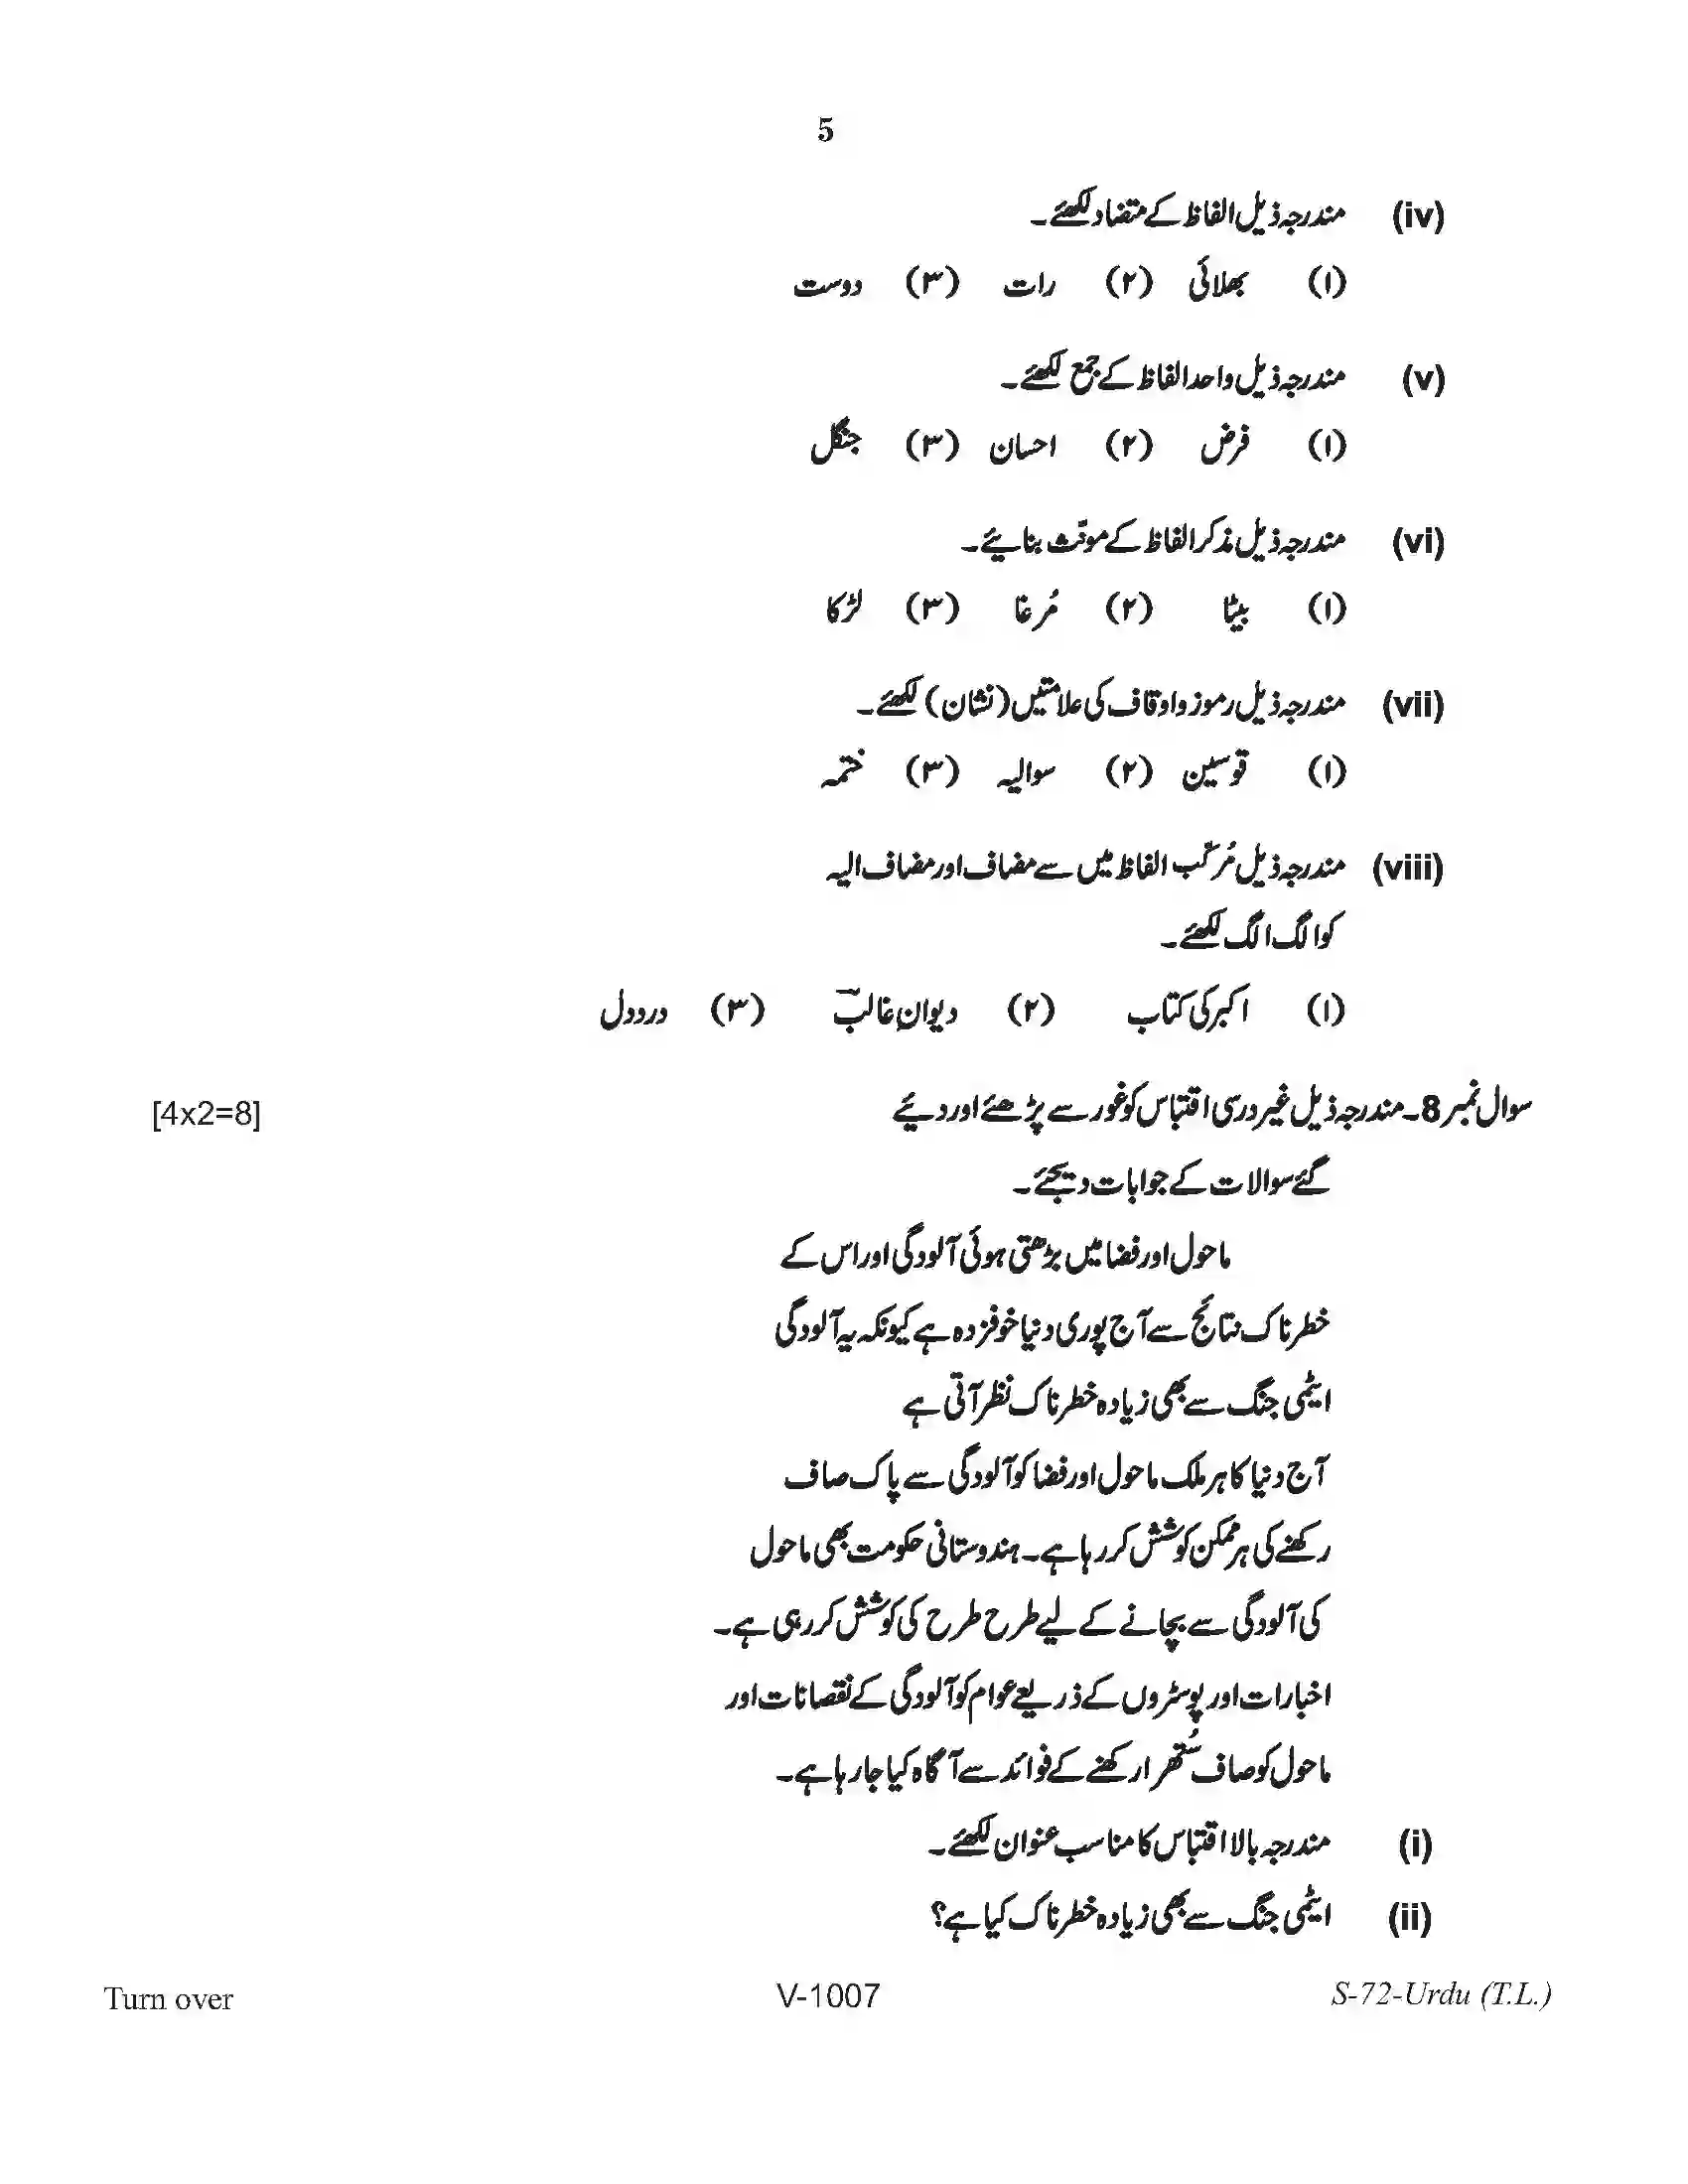 5
(iv) مندرجہ ذیل الفاظ کے متضاد لکھئے۔
(۱) بھلائی (۲) رات (۳) دوست
(v) مندرجہ ذیل واحد الفاظ کے جمع لکھئے۔
(۱) فرض (۲) احسان (۳) جنگل
(vi) مندرجہ ذیل مذکر الفاظ کے مونّث بنائیے۔
(۱) بیٹا (۲) مُرغا (۳) لڑکا
(vii) مندرجہ ذیل رموز و اوقاف کی علامتیں (نشان) لکھئے۔
(۱) قوسین (۲) سوالیہ (۳) ختمہ
(viii) مندرجہ ذیل مُرکّب الفاظ میں سے مضاف اور مضاف الیہ
کو الگ الگ لکھئے۔
(۱) اکبر کی کتاب (۲) دیوانِ غالبؔ (۳) درد دل
سوال نمبر 8۔ مندرجہ ذیل غیر درسی اقتباس کو غور سے پڑھئے اور دیئے [4x2=8]
گئے سوالات کے جوابات دیجئے۔
ماحول اور فضا میں بڑھتی ہوئی آلودگی اور اس کے
خطرناک نتائج سے آج پوری دنیا خوفزدہ ہے کیونکہ یہ آلودگی
ایٹمی جنگ سے بھی زیادہ خطرناک نظر آتی ہے
آج دنیا کا ہر ملک ماحول اور فضا کو آلودگی سے پاک صاف
رکھنے کی ہر ممکن کوشش کر رہا ہے۔ ہندوستانی حکومت بھی ماحول
کی آلودگی سے بچانے کے لیے طرح طرح کی کوشش کر رہی ہے۔
اخبارات اور پوسٹروں کے ذریعے عوام کو آلودگی کے نقصانات اور
ماحول کو صاف سُتھرا رکھنے کے فوائد سے آگاہ کیا جا رہا ہے۔
(i) مندرجہ بالا اقتباس کا مناسب عنوان لکھئے۔
(ii) ایٹمی جنگ سے بھی زیادہ خطرناک کیا ہے؟
Turn over V-1007 S-72-Urdu (T.L.)